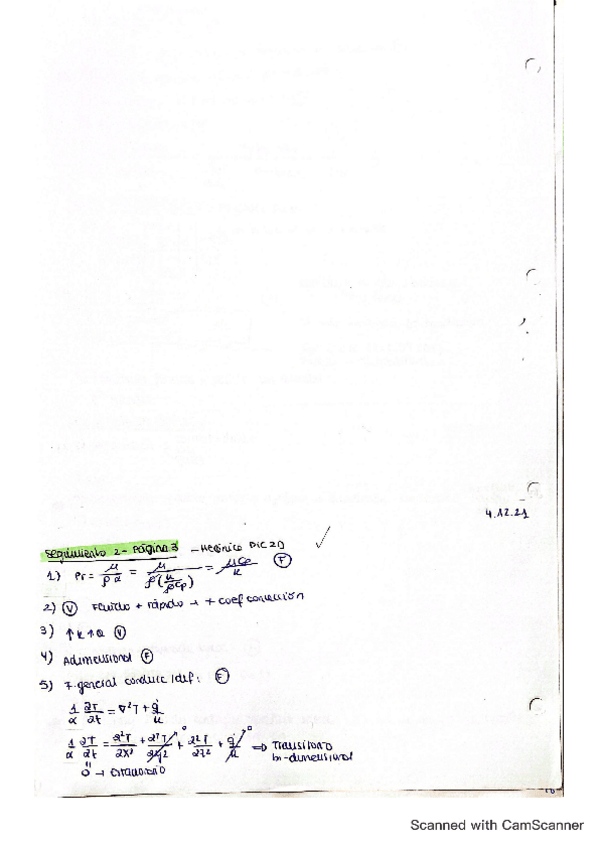 4.12.21
Seguimiento 2 - Página 3 - Mecánico DIC 20
1) Pr = μ/(ρ α) = μ/(ρ(k/(ρ cp))) = μ cp/k (F)
2) (V) Fluido + rápido → + coef convección
3) ↑k ↑Q (V)
4) Adimensional (F)
5) F. general conducc / dif: (F)
1/α ∂T/∂t = ∇²T + q̇/k
1/α ∂T/∂t = ∂²T/∂x² + ∂²T/∂y² 0 + ∂²T/∂z² + q̇/k 0 ⇒ Transitorio
bi-dimensional
0 →
Scanned with CamScanner